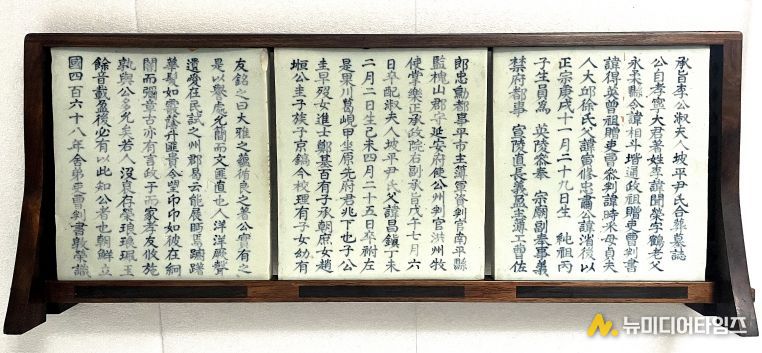 承旨李公淑夫人坡平尹氏合葬墓誌
公自孝寧大君著姓李諱閏榮字鶴老父
永柔縣令諱相斗增通政祖贈吏曹判書
諱得英曾祖贈吏曹參判諱時采母貞夫
人大邱徐氏父諱修忠肅公諱渻後以
正宗庚戌十一月二十九日生 純祖丙
子生員爲 英陵參奉 宗廟副奉事義
禁府都事 宣陵直長義盈主簿工曹佐
郎忠勳都事平市主簿軍資判官南平縣
監槐山郡守延安府使公州判官洪州牧
使掌樂正承政院右副承旨戊午七月六
日卒配淑夫人坡平尹氏父諱昌鎮丁未
二月二日生己未四月二十五日卒祔左
是果川葛峴甲坐原先府君兆下也子公
圭早歿女進士鄭基百有子承朝庶女趙
垣公圭子族子京鎬今校理有子女幼有
友銘之曰大雅之循良之著公實有之
是以譽處允簡而文匪直也人洋洋厥聲
遺愛在民試之州郡易云能展焉
華髮如雲蔭升匪貴令望卬卬如彼在絅
闇而彌章古亦有言政于而家孝友攸施
孰與公多允矣若人沒良存榮琅琅珮玉
餘音載盈後必有以此知公者也朝鮮立
國四百六十八年舍弟吏曹判書敦榮識
뉴미디어타임즈